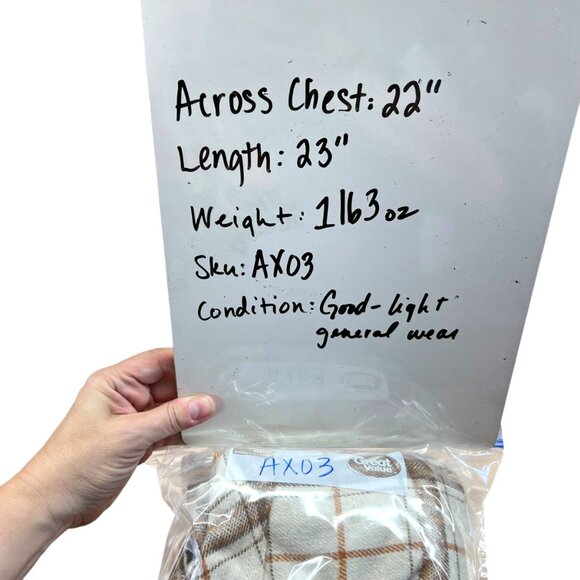 Across Chest: 22"
Length: 23"
Weight: 1 lb 3 oz
Sku: AX03
Condition: Good - light
general wear
AX03
Great
Value